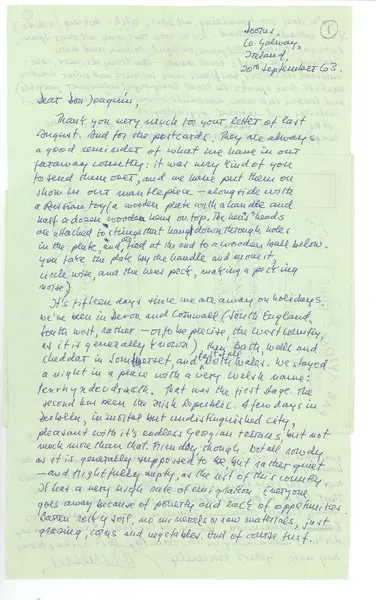 1
Co Galway,
Ireland,
20th September 63.
Dear Don Joaquin,
Thank you very much for your letter of last
August. And for the postcards. They are always
a good reminder of what we have in our
faraway country: it was very kind of you
to send them over, and we have put them on
show in our mantlepiece – alongside with
a Russian toy (a wooden plate with a handle and
half a dozen wooden hens on top. The hens' heads
are attached to strings that hang down through holes
in the plate, and, tied at the end to a wooden ball below.
You take the plate by the handle and move it
circle wise, and the hens peck, making a pecking
noise)
It's fifteen days since we are away on holidays.
We've been in Devon and Cornwall (South England,
South west, rather – or, to be precise, the West Country,
as it is generally known), then Bath, Wells and
Cheddar in Sommerset and lastly Wales. We stayed
a night in a place with a very Welsh name:
That was the first stage. The
second has been the Irish Republic. A few days in
Dublin, in but undistinguished city,
pleasant with it's endless Georgian terraces, but not
much more than that. Friendly, though. Not all rowdy
as it is generally supposed to be, but rather quiet
– and frightfully empty, as the rest of this country
It has a very high rate of emigration. Everyone
goes away because of poverty and lack of opportunities.
Barren rocky soil, no minerals or raw materials, just
grazing, cows and vegetables. And of course turf.